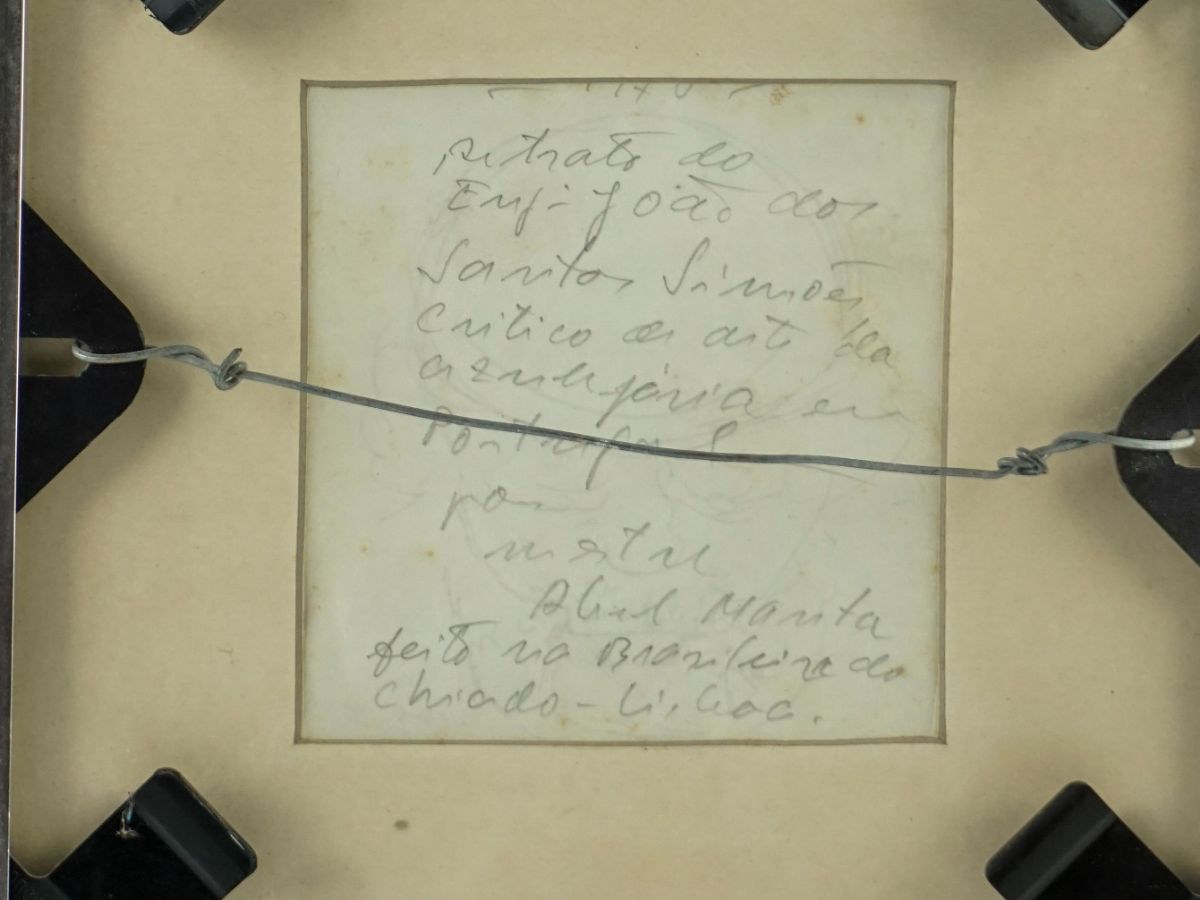 retrato do
Engº João dos
Santos Simões
Critico de arte da
azulejária em
Portugal
por
mestre
Abel Manta
feito na Brasileira do
Chiado - Lisboa.